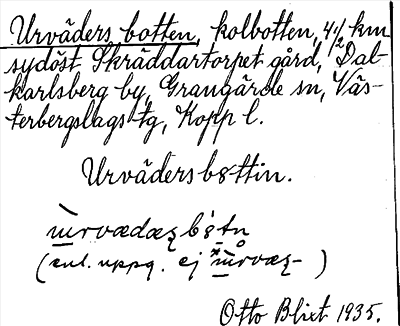 Urväders botten, kolbotten, 4 1/2 km
sydöst Skräddartorpet gård, Dal-
karlsberg by, Grangärde sn, Väs-
terbergslags tg, Kopp l.
Urvädersbottin.
(enl. uppg. ej
Otto Blixt 1935.